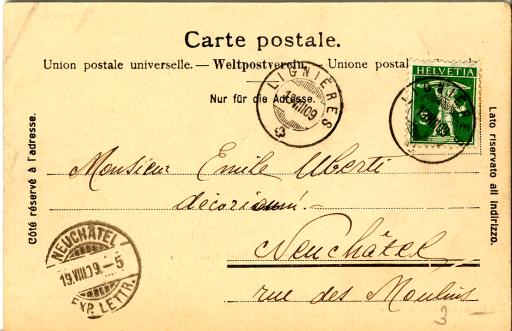 Carte postale.
Union postale universelle. — Weltpostverein. — Unione postal
HELVETIA
LIGNIÈRES
LIGNIÈRES
Nur für die Adresse.
Côté réservé à l'adresse.
Lato riservato all indirizzo.
Monsieur Emile Uberti
Neuchâtel
rue des Moulins
NEUCHÂTEL
19.VIII.09.–5
EXP. LETTR.
3